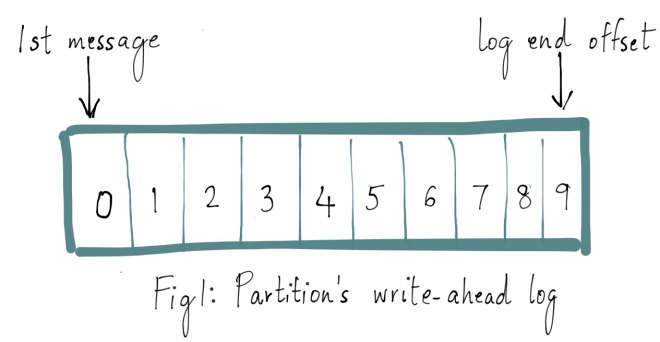 1st message
log end offset
0 1 2 3 4 5 6 7 8 9
Fig1: Partition's write-ahead log